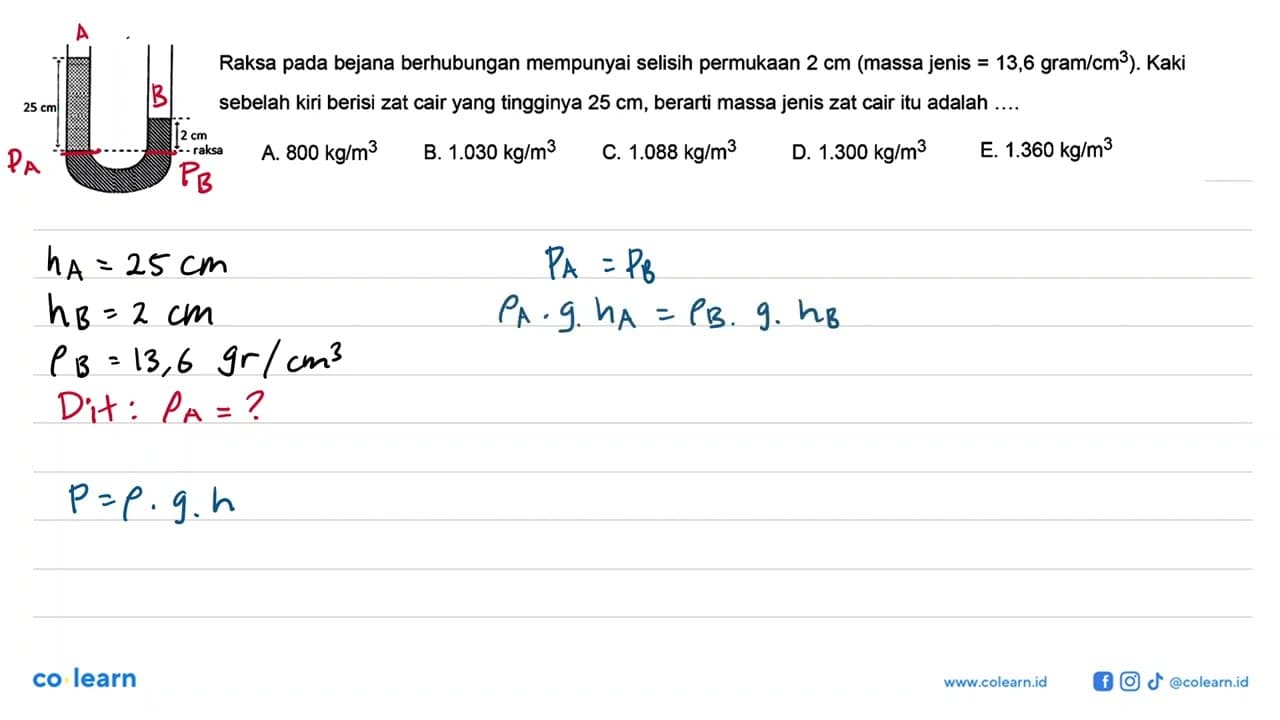 A
Raksa pada bejana berhubungan mempunyai selisih permukaan 2 cm (massa jenis = 13,6 gram/cm³). Kaki
B
25 cm
sebelah kiri berisi zat cair yang tingginya 25 cm, berarti massa jenis zat cair itu adalah ....
2 cm
raksa
A. 800 kg/m³ B. 1.030 kg/m³ C. 1.088 kg/m³ D. 1.300 kg/m³ E. 1.360 kg/m³
P_A
P_B
h_A = 25 cm
h_B = 2 cm
ρ_B = 13,6 gr/cm³
Dit: ρ_A = ?
P = ρ . g . h
P_A = P_B
ρ_A . g . h_A = ρ_B . g . h_B
co learn
www.colearn.id
@colearn.id